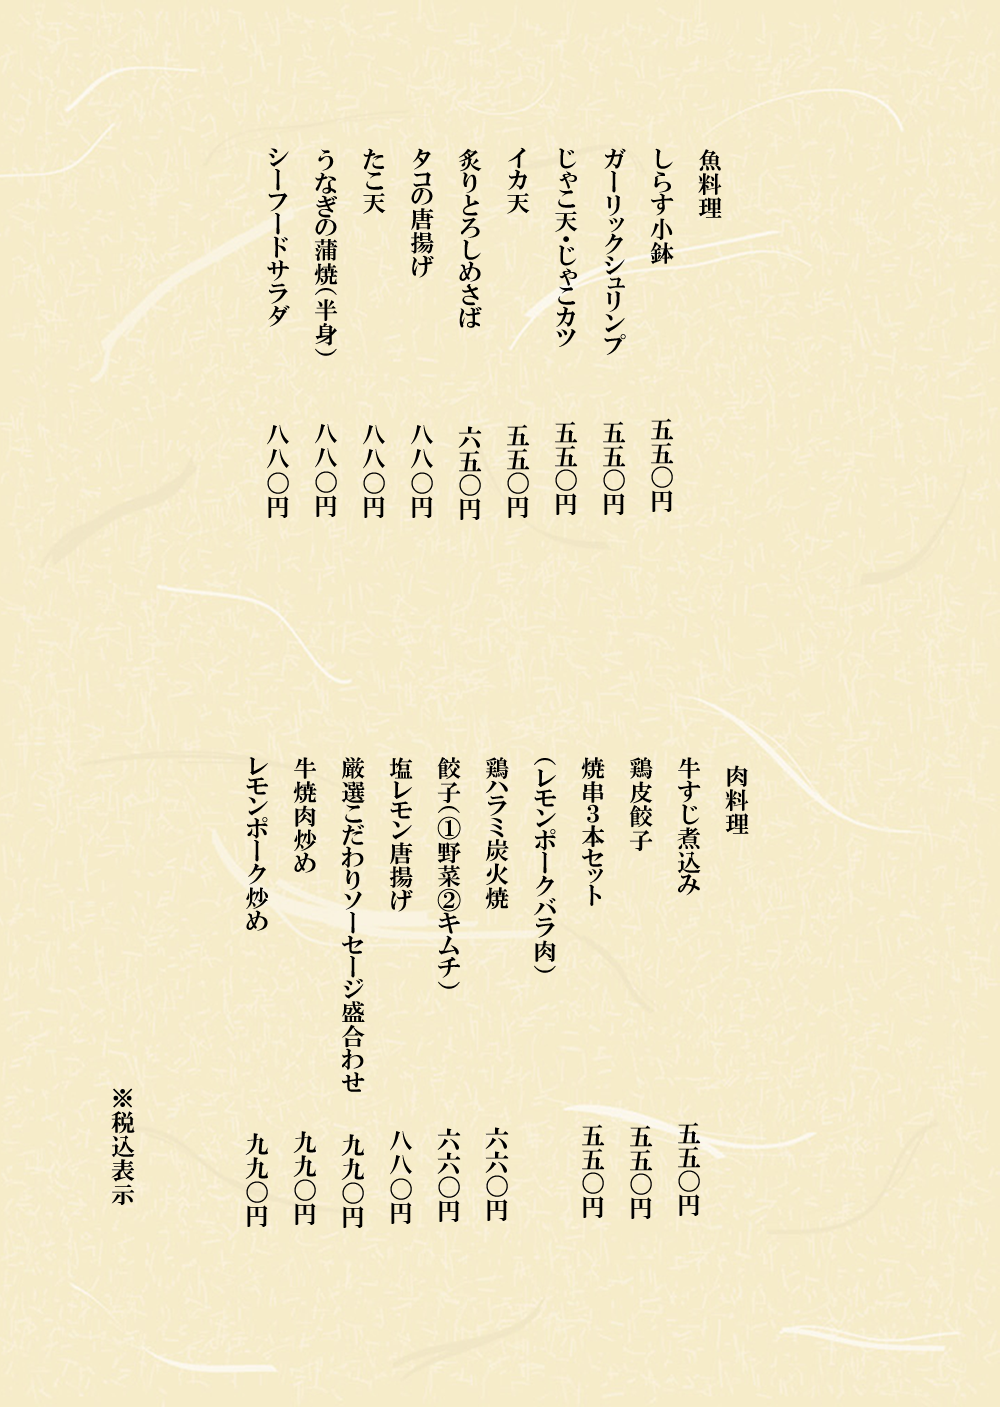 魚料理
しらす小鉢 五五〇円
ガーリックシュリンプ 五五〇円
じゃこ天・じゃこカツ 五五〇円
イカ天 五五〇円
炙りとろしめさば 六五〇円
タコの唐揚げ 八八〇円
たこ天 八八〇円
うなぎの蒲焼(半身) 八八〇円
シーフードサラダ 八八〇円
肉料理
牛すじ煮込み 五五〇円
鶏皮餃子 五五〇円
焼串3本セット 五五〇円
(レモンポークバラ肉)
鶏ハラミ炭火焼 六六〇円
餃子(①野菜②キムチ) 六六〇円
塩レモン唐揚げ 八八〇円
厳選こだわりソーセージ盛合わせ 九九〇円
牛焼肉炒め 九九〇円
レモンポーク炒め 九九〇円
※税込表示